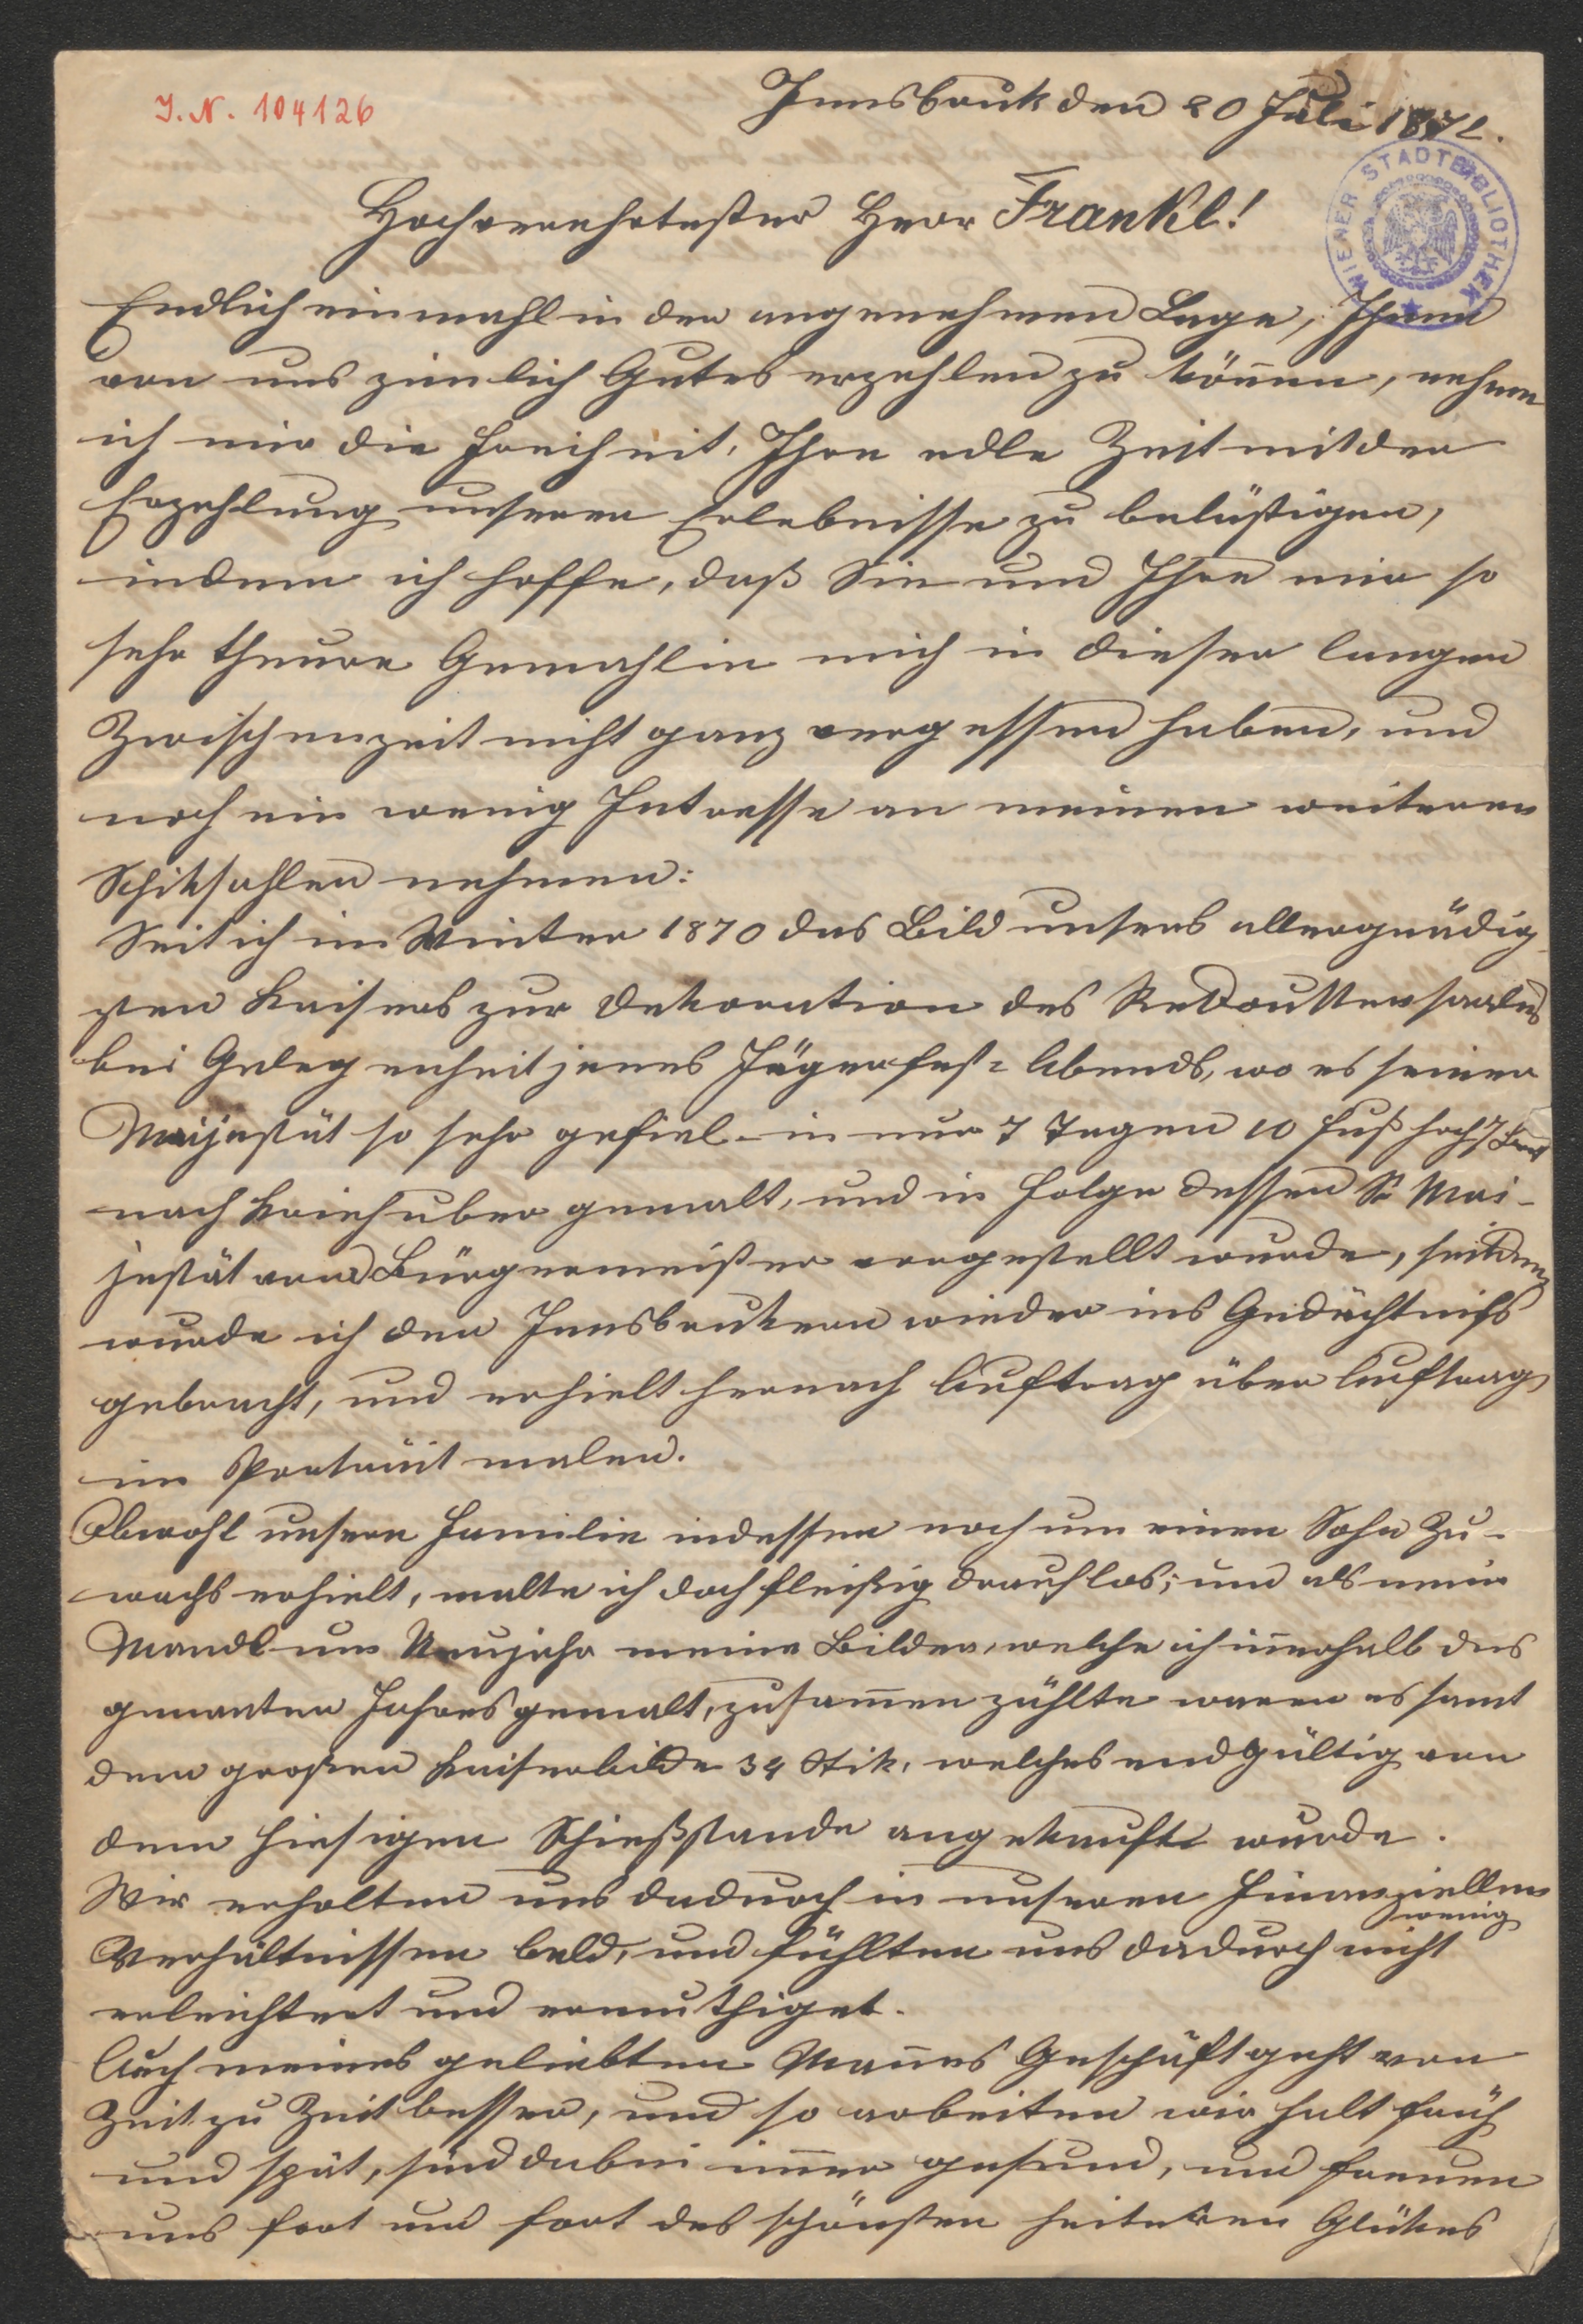 I. N. 104126
Innsbruk den 20 Juli 1871.
WIENER STADTBIBLIOTHEK
Hochverehrtester Herr Frankl!
Endlich einmahl in der angenehmen Lage, Ihnen
von uns zimlich Gutes erzehlen zu köñen, nehme
ich mir die Freiheit, Ihre edle Zeit mit der
Erzehlung unserer Erlebnisse zu belästigen,
indem ich hoffe, daß Sie und Ihre mir so
sehr theure Gemahlin mich in dieser langen
Zwischenzeit nicht ganz vergessen haben, und
noch ein wenig Intresse an meinen weiteren
Schiksahlen nehmen:
Seit ich im Winter 1870 das Bild unsers allergnädig
sten Kaisers zur Dekoration des Redouttensaales
bei Gelegenheit jenes Jägerfest-Abends, wo es seiner
Maijestät so sehr gefiel – in nur 7 Tagen 10 Fuß hoch 7 Breit
nach Kriehuber gemalt, und in Folge dessen Sr Mai-
jestät vom Bürgermeister vorgestellt wurde, seitdem
wurde ich den Innsbrukern wieder ins Gedächtniß
gebracht, und erhielt hernach Auftrag über Auftrag
im Portrait malen.
Obwohl unsere Familie indessen noch um einen Sohn Zu-
wachs erhielt, malte ich doch fleißig drauf los; und als mein
Mandl um Neujahr meine Bilder, welche ich iñerhalb des
genanten Jahres gemalt, zusam̄en zählte waren es samt
dem großen Kaiserbilde 34 Stik, welches endgültig von
dem hiesigen Schießstande angekauft wurde.
Wir erholten uns dadurch in unseren Finanziellen
Verhältnissen bald, und fühlten uns dadurch nicht wenig
erleichtert und ermuthiget.
Auch meines geliebten Mañes Geschäft geht von
Zeit zu Zeit besser, und so arbeiten wir halt früh
und spät, sind dabei im̄er gesund, und freuen
uns fort und fort des schönsten heitersten Glükes